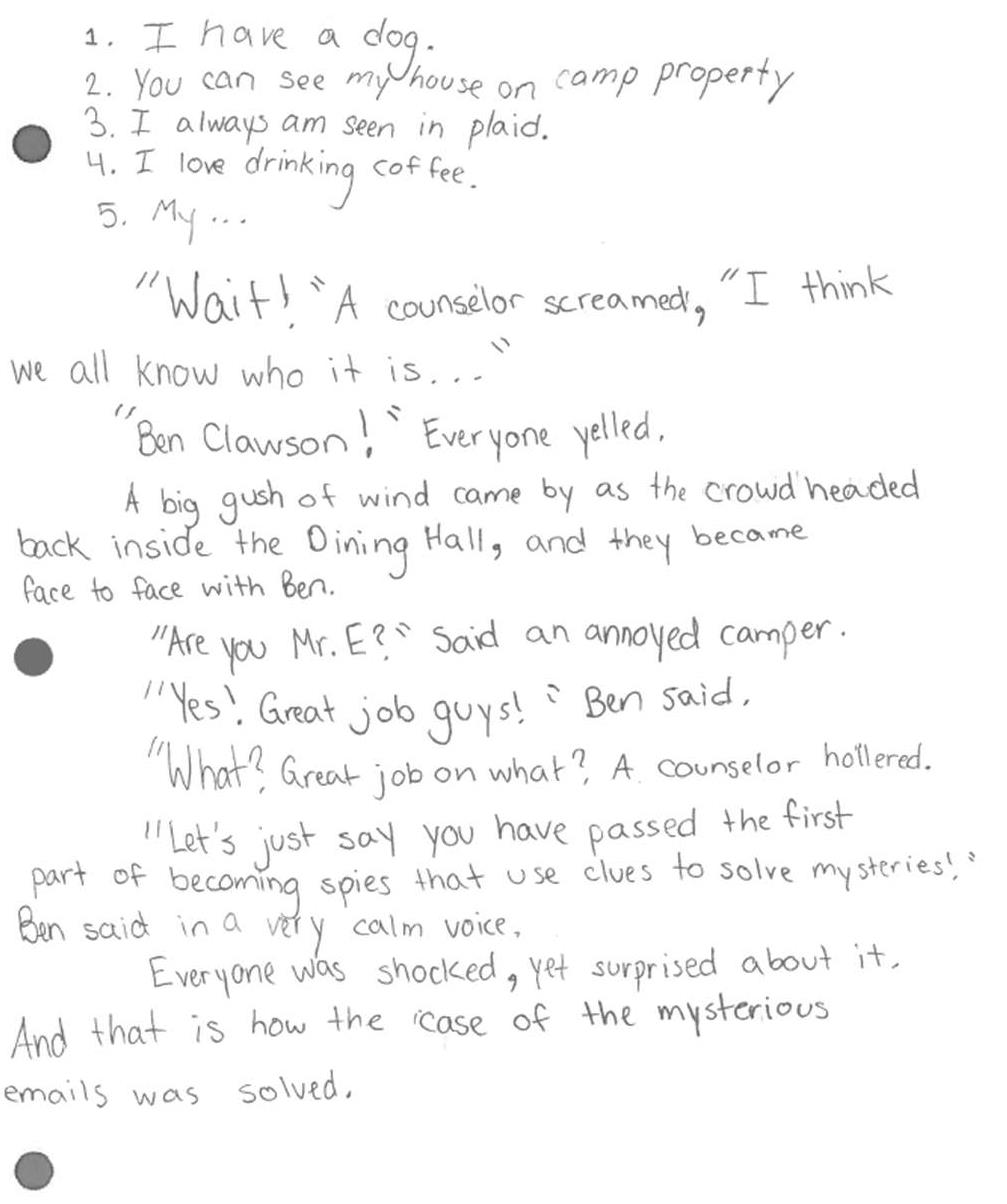 1. I have a dog.
2. You can see my house on camp property
3. I always am seen in plaid.
4. I love drinking coffee.
5. My...
"Wait!" A counselor screamed, "I think
we all know who it is..."
"Ben Clawson!" Everyone yelled.
A big gush of wind came by as the crowd headed
back inside the Dining Hall, and they became
face to face with Ben.
"Are you Mr. E?" Said an annoyed camper.
"Yes! Great job guys!" Ben said.
"What? Great job on what? A counselor hollered.
"Let's just say you have passed the first
part of becoming spies that use clues to solve mysteries!"
Ben said in a very calm voice.
Everyone was shocked, yet surprised about it.
And that is how the case of the mysterious
emails was solved.